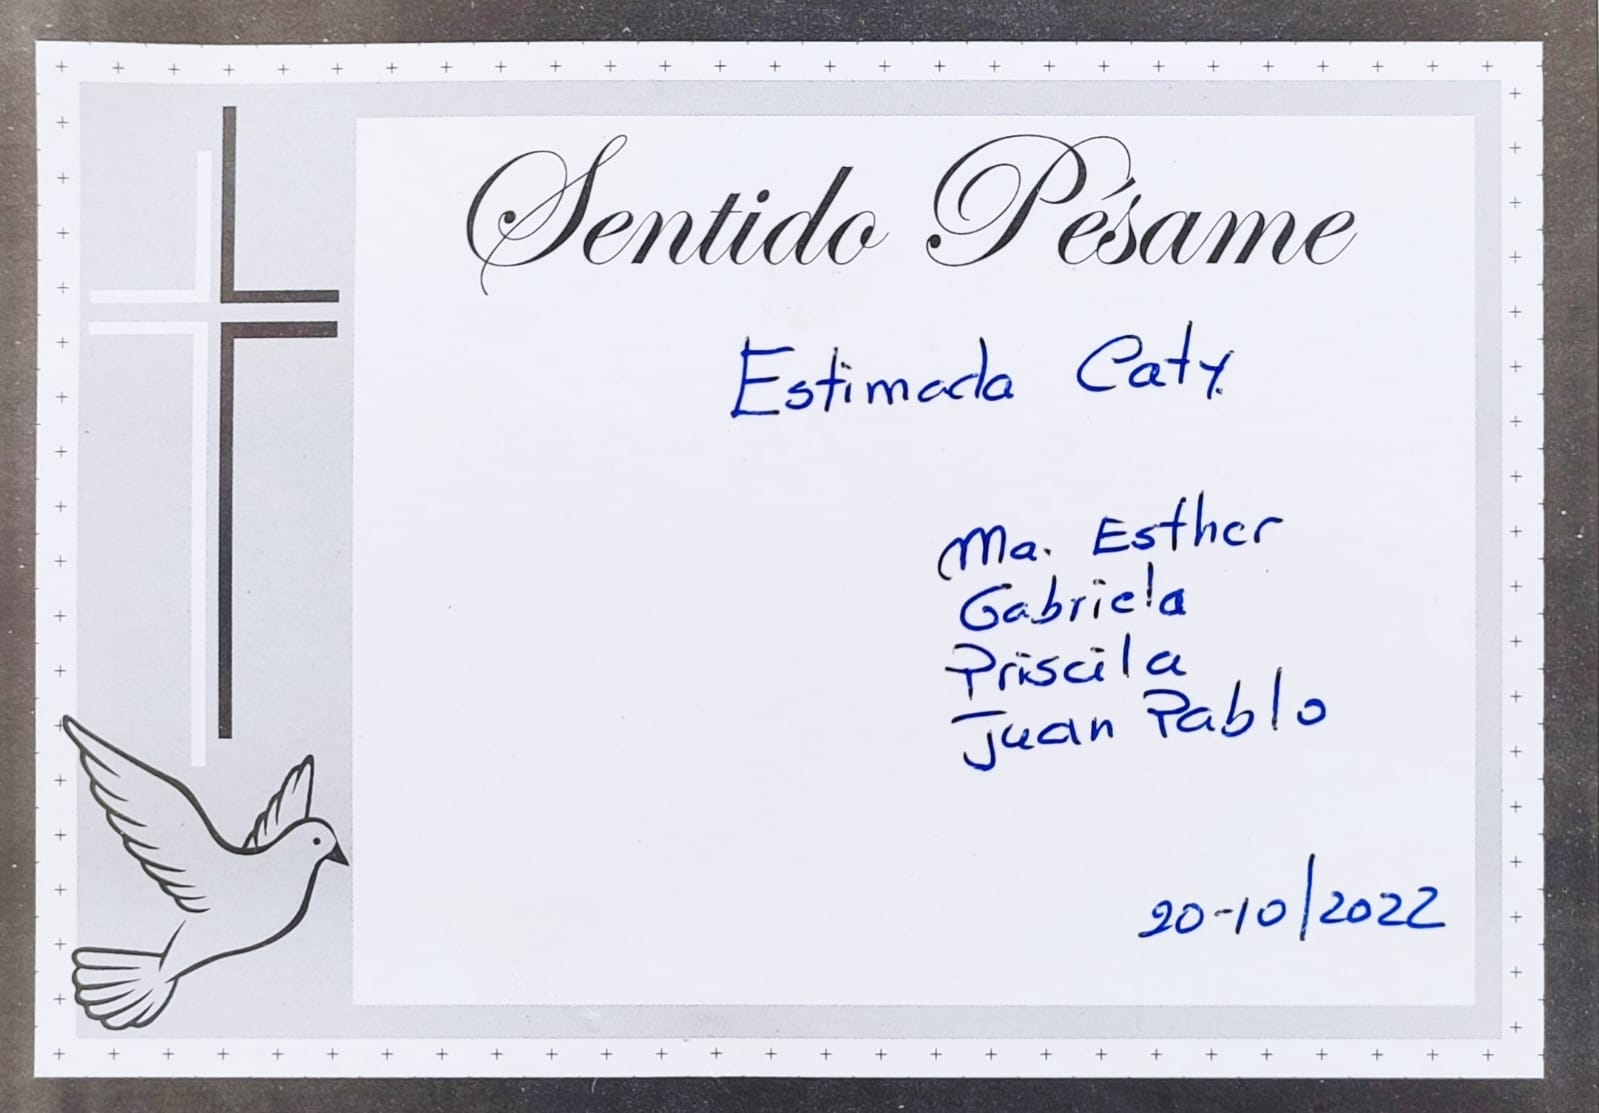 Sentido Pésame
Estimada Caty
Ma. Esther
Gabriela
Priscila
Juan Pablo
20-10/2022